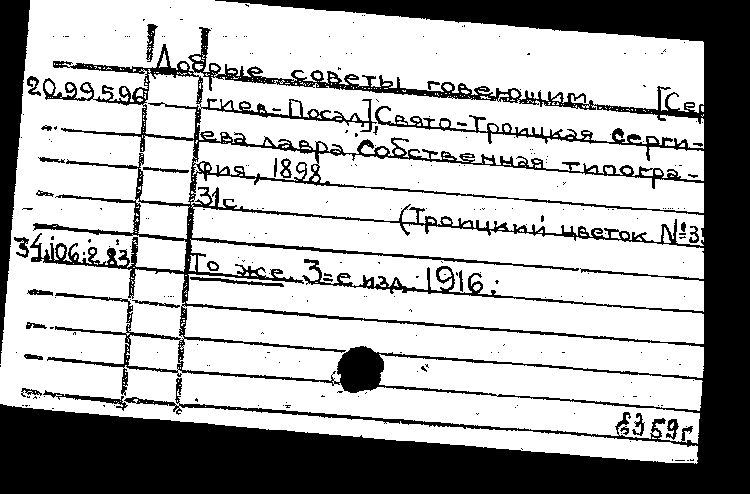 Добрые советы говеющим. [Сер
20.99.596 гиев-Посад] Свято-Троицкая Серги-
ева лавра, Собственная типогра-
фия, 1898.
31с.
(Троицкий цветок №35
34.106.2.83 То же. 3=е изд. 1916.
59г.